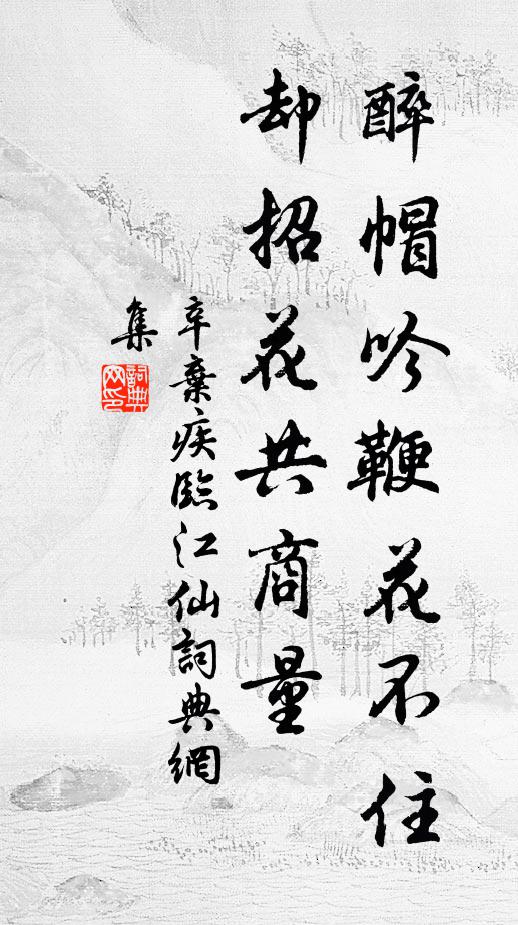 醉帽吟鞭花不住
却招花共商量
辛棄疾臨江仙詞典網
集
詞典
网印